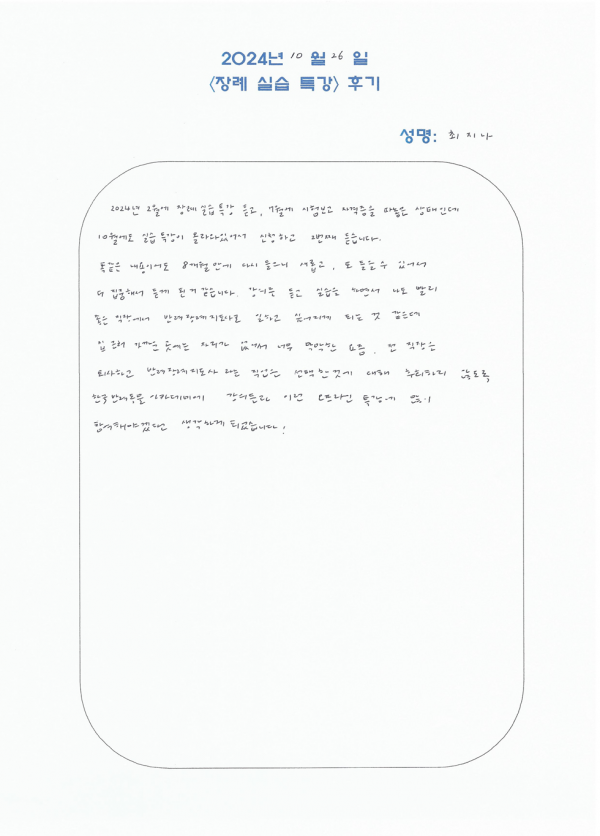 2024년 10월 26일
<장례 실습 특강> 후기
성명: 최지나
2024년 2월에 장례실습특강 듣고, 7월에 시험보고 자격증을 따놓은 상태인데
10월에도 실습특강이 올라와있어서 신청하고 2번째 듣습니다.
똑같은 내용이어도 8개월만에 다시 들으니 새롭고, 또 들을 수 있어서
더 집중해서 듣게 된거 같습니다. 강의를 듣고 실습을 하면서 나도 빨리
좋은 직장에서 반려장례지도사로 일하고 싶어지게 되는 것 같은데
일단 가까운 곳에는 자리가 없어서 너무 막막한 요즘, 전 직장은
퇴사하고 반려장례지도사 라는 직업을 선택한것에 대해 후회하지 않도록
한국반려동물아카데미에 강의들과 이런 오프라인 특강에 많이
참여해야겠다는 생각하게 되었습니다!